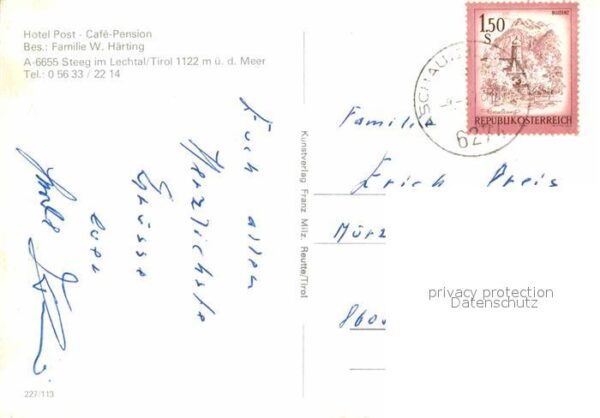 Hotel Post · Café-Pension
Bes.: Familie W. Härting
A-6655 Steeg im Lechtal/Tirol 1122 m ü. d. Meer
Tel.: 0 56 33 / 22 14
Euch allen
Herzlichste
Grüsse
eure
227/113
Kunstverlag Franz Milz, Reutte/Tirol
BLUDENZ
1.50
S
REPUBLIK ÖSTERREICH
ASCHAU
627
Familie
Erich Preis
Mürz
8600
privacy protection
Datenschutz